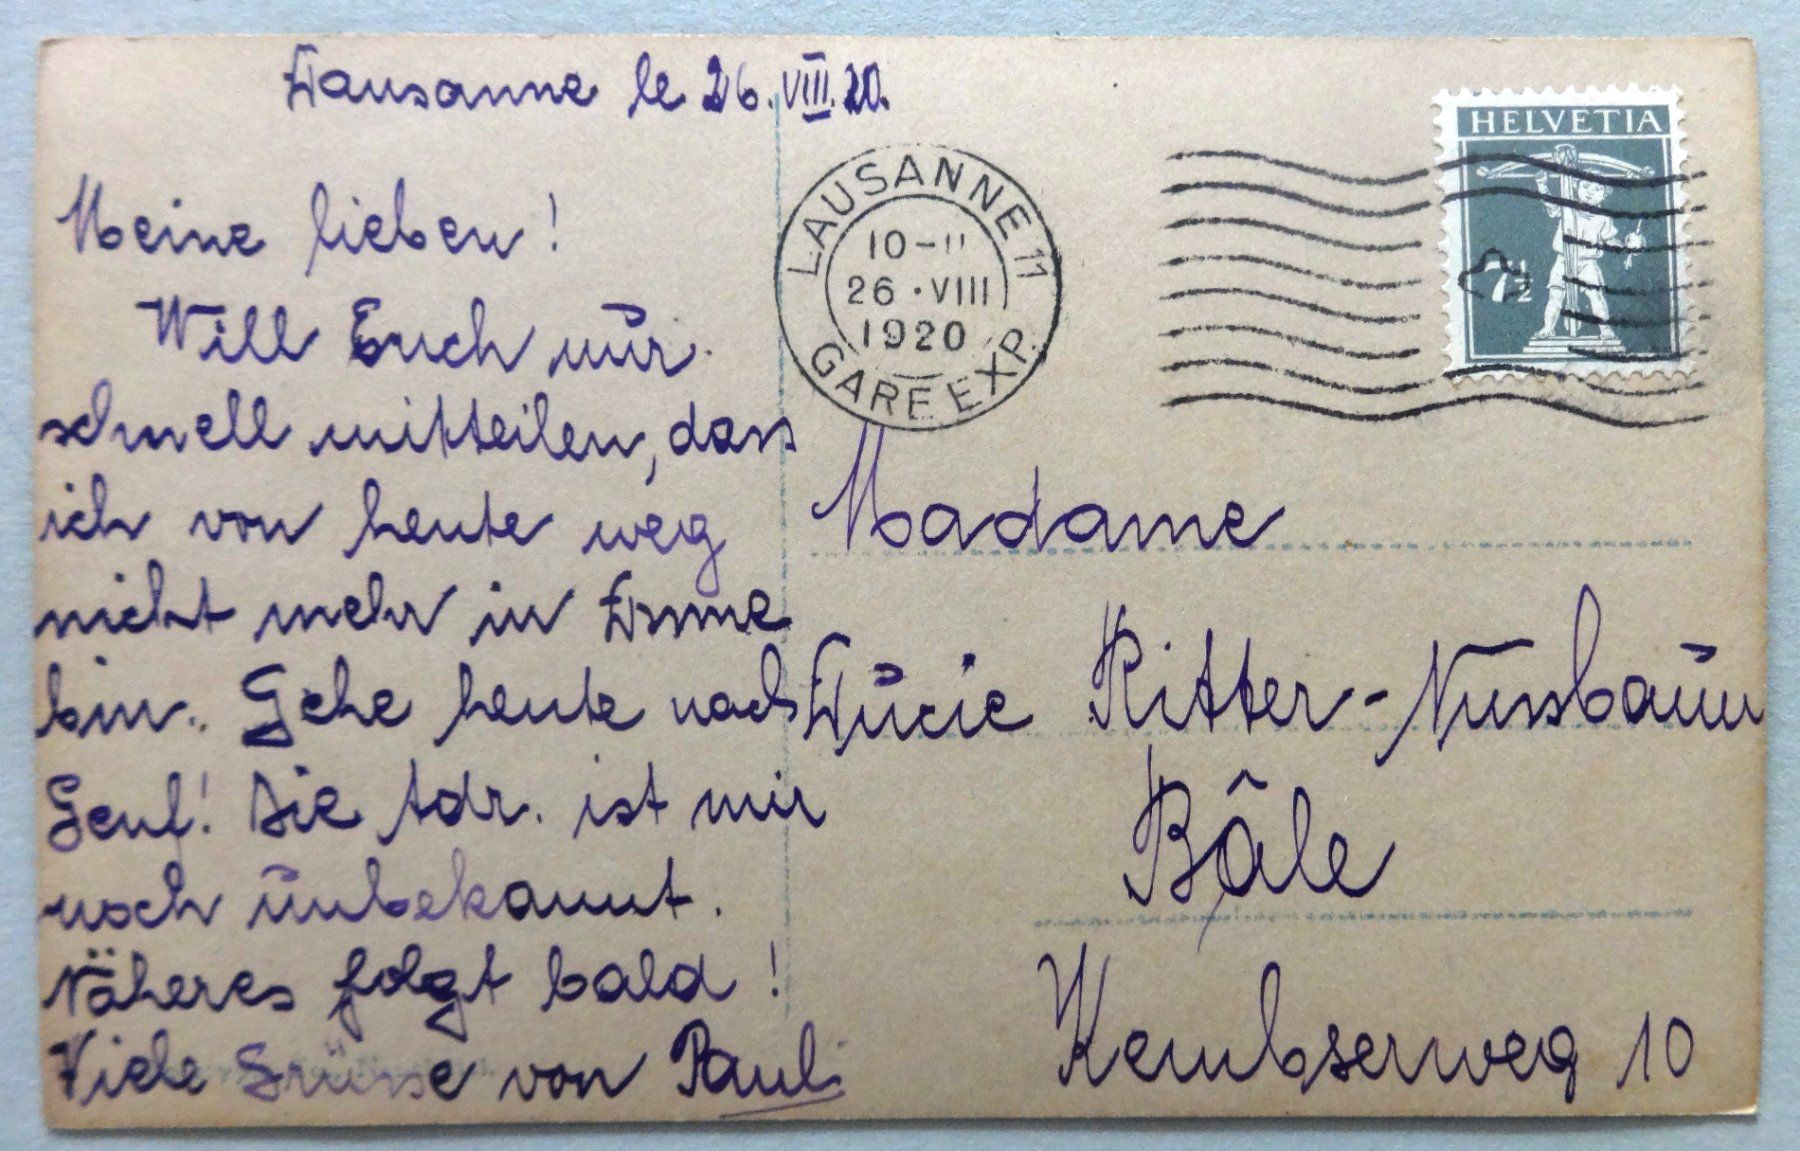 Lausanne le 26.VIII.20.
Meine lieben!
Will Euch nur
schnell mitteilen, dass
ich von heute weg
nicht mehr in
bin. Gehe heute nach
Genf! Die Adr. ist mir
noch unbekannt.
Näheres folgt bald!
Viele Grüsse von Paul.
LAUSANNE 11
10-11
26·VIII
1920
GARE EXP.
HELVETIA
7½
Madame
Lucie Ritter-Nussbaum
Bâle
Kembserweg 10